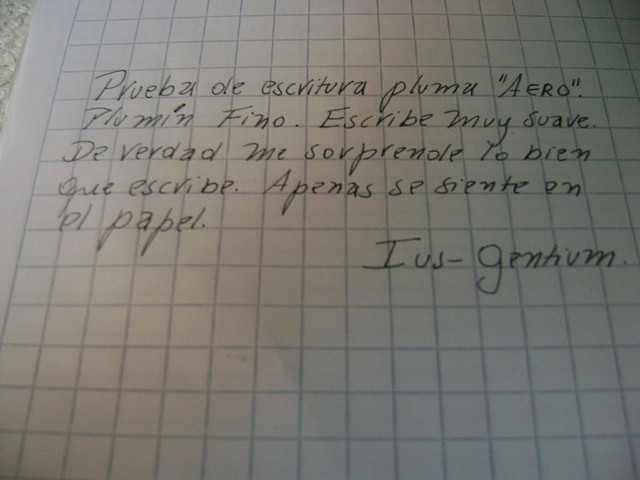 Prueba de escritura pluma "AERO".
Plumín Fino. Escribe muy suave.
De verdad me sorprende lo bien
que escribe. Apenas se siente en
el papel.
Ius-gentium.